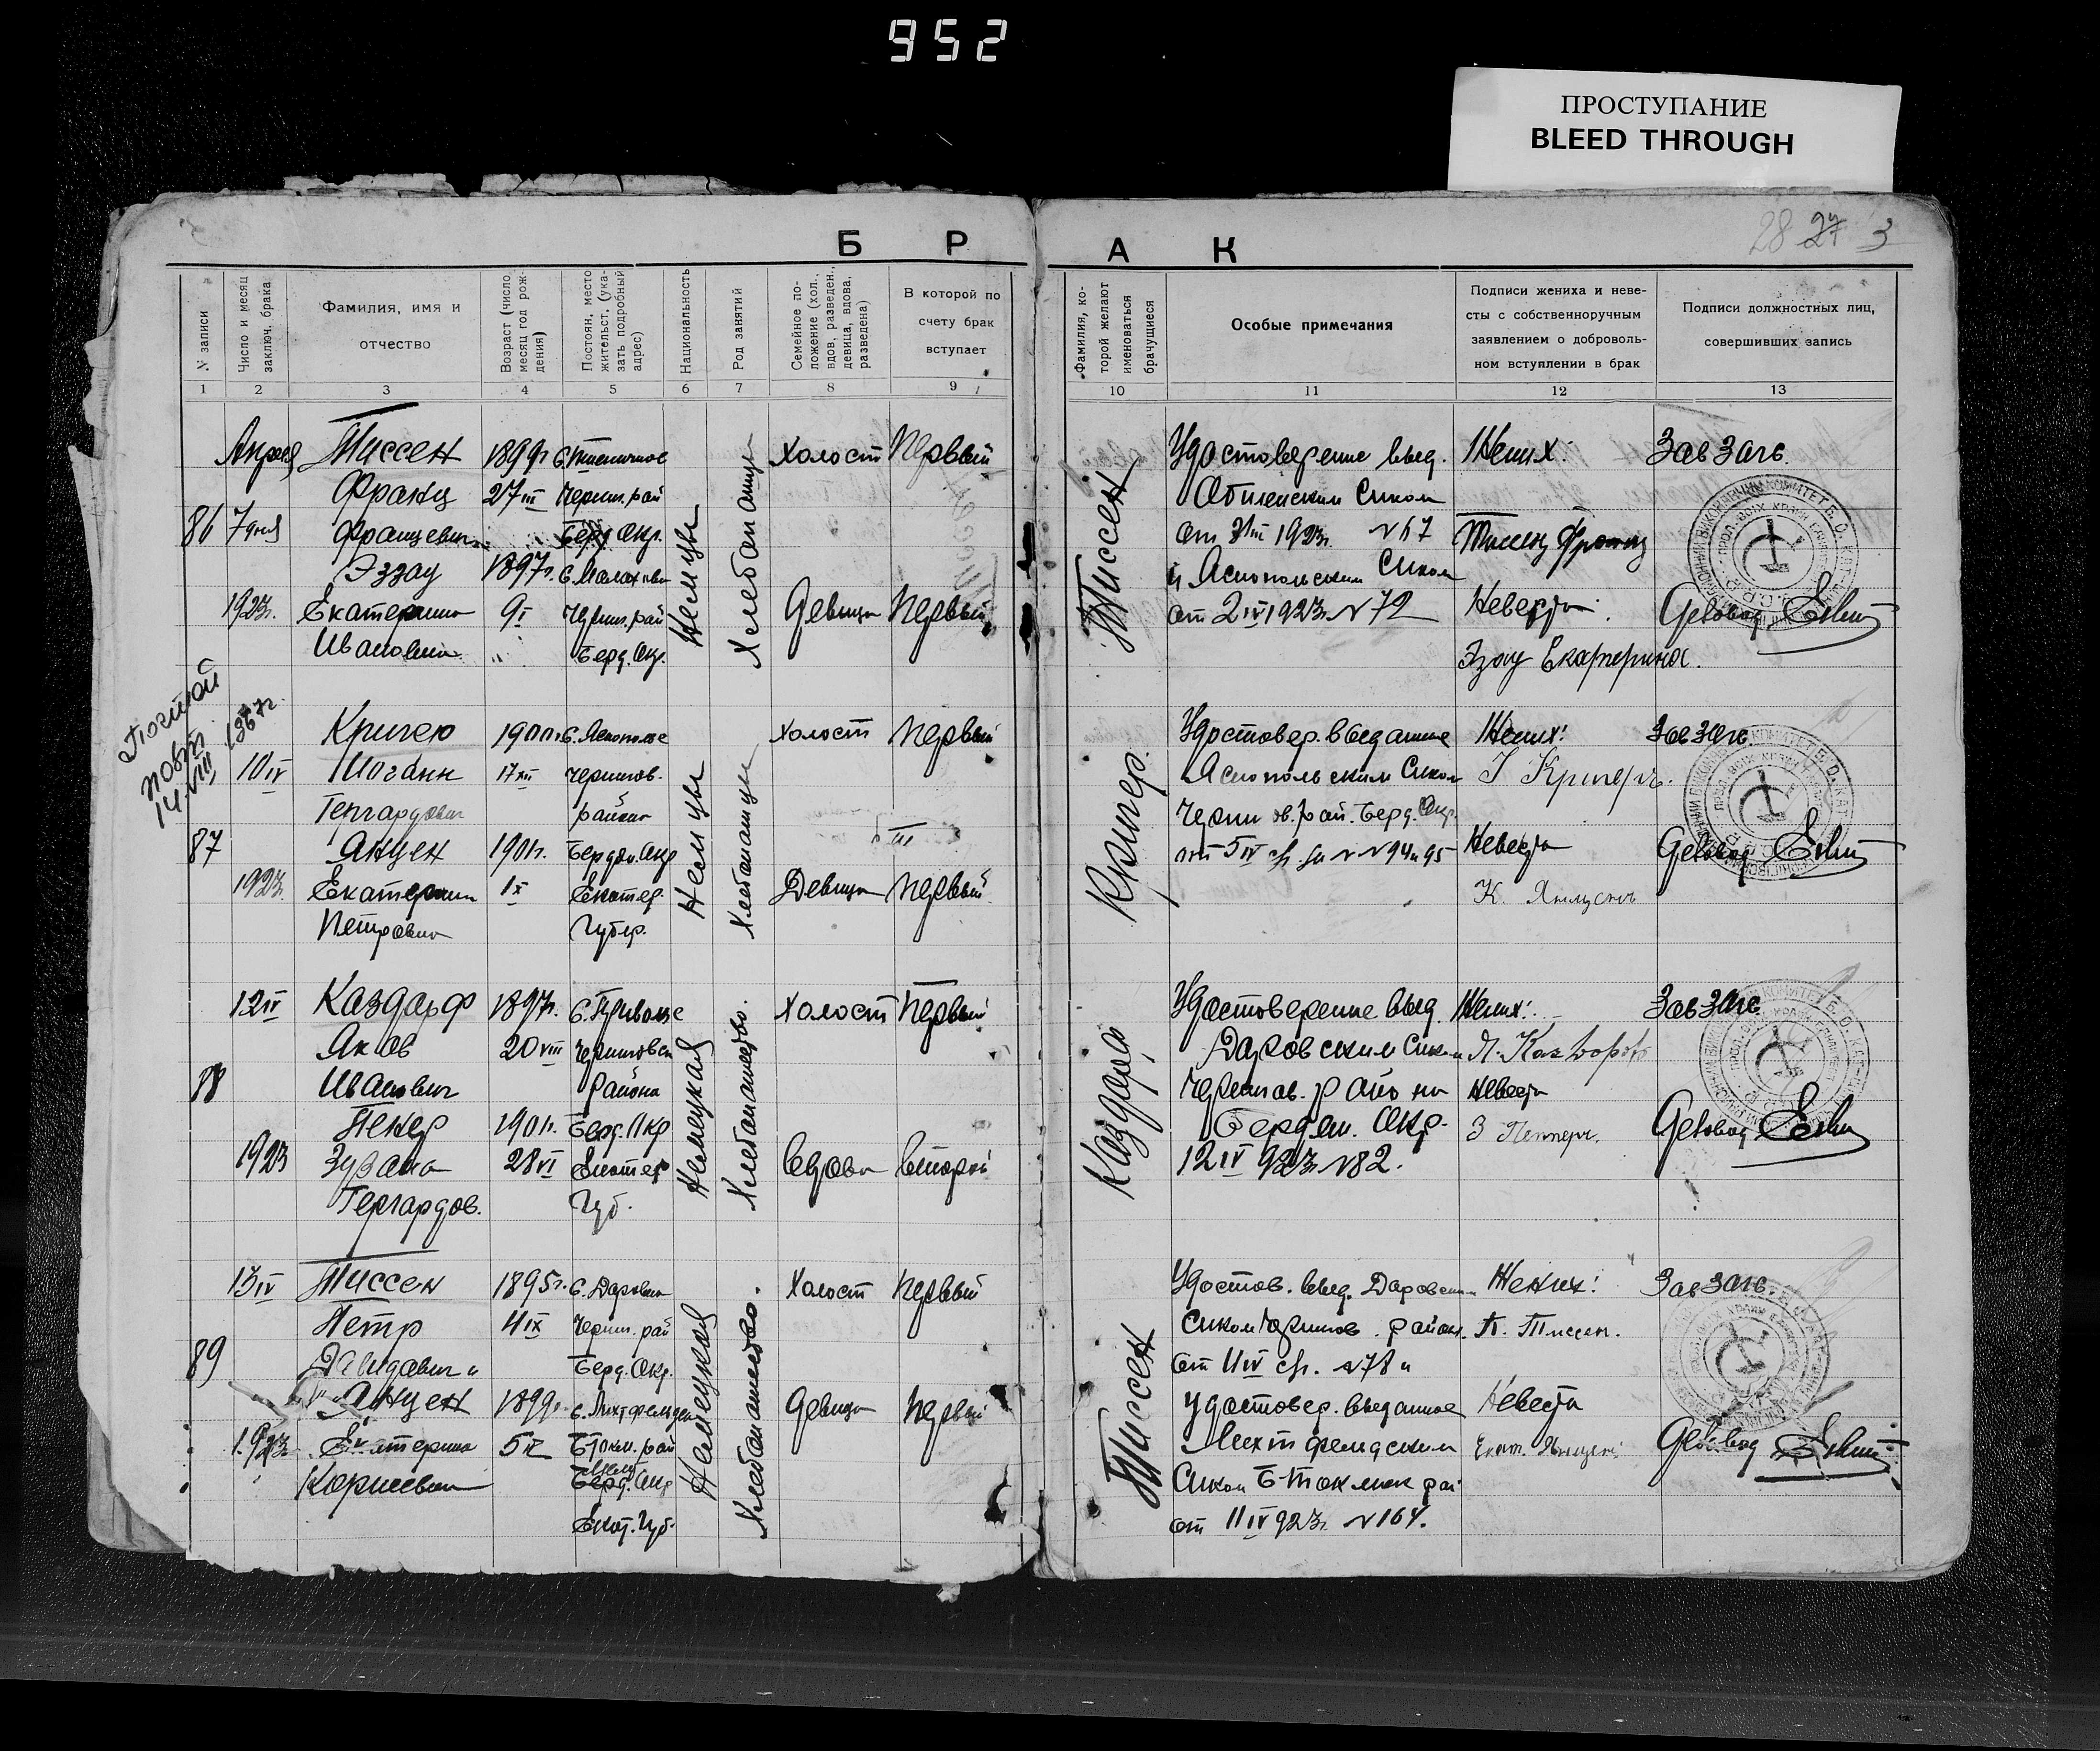 952
ПРОСТУПАНИЕ
BLEED THROUGH
28 27 3
Б Р А К
N записи
Число и месяц заключ. брака
Фамилия, имя и отчество
Возраст (число, месяц год рождения)
Постоян. место жительст. (указать подробный адрес)
Национальность
Род занятий
Семейное положение (хол., вдов, разведен., девица, вдова, разведена)
В которой по счету брак вступает
Фамилия, которой желают именоваться брачущиеся
Особые примечания
Подписи жениха и невесты с собственноручным заявлением о добровольном вступлении в брак
Подписи должностных лиц, совершивших запись
1 2 3 4 5 6 7 8 9 10 11 12 13
86
Апреля
7 дня
1923г.
Тиссен
Франц
Францевич
Эззау
Екатерина
Ивановна
1899г
27 III
1897г.
9 I
с. Пшеничное
Черниг. рай
Берд. Окр.
Черниг. рай
Берд. Окр.
Немцы
Хлебопашцы
Холост Первый
Девица Первый
Тиссен
Удостоверение выд.
от III 1923г. N 67
и Яснопольским Сиком
от 2 IV 1923г. N 72
Жених:
Тиссен Франц
Невеста:
Эзау Екатерина.
Зав загс.
87
Повт.
14 VIII 1967г.
10 IV
1923.
Кригер
Иоганн
Гергардович
Янцен
Екатерина
Петровна
1900г.
17 XII
1901г.
1 X
с. Яснополье
Чернигов.
района
Бердян. Окр
Екатер.
Губер.
Немцы
Хлебопашцы
Холост Первый
III
Девица Первый
Кригер.
Удостовер. выданные
Яснопольским Сиком
Черниговс. рай. Берд. Окр.
от 5 IV с/г. за N N 94 и 95
Жених:
І Кригеръ.
Невеста
К. Янценъ
Зав загс.
88
12 IV
1923
Каздорф
Яков
Иванович
Пенер
Зузана
Гергардов.
1897г.
20 VIII
1901г.
28 VI
с. Привольне
Черниговск
района
Берд. Окр
Екатер
Губ.
Немецкая
Хлебопашество.
Холост Первый
Вдова Второй
Каздорф
Удостоверение выд.
Даровским Сиком
Чернигов. района
Бердян. Окр.
12 IV 923г. N 82.
Жених:
Я. Каздорф
Невеста
З Пеннеръ.
Зав загс.
89
13 IV
1923г.
Тиссен
Петр
Давидович и
Янцен
Екатерина
Корнеевна
1895г.
4 IX
1899г.
5 IX
с. Даровка
Черниг. рай
Берд. Окр.
с. Лихтфельден
Б Токм. рай
Мелит
Берд. Окр
Екат. Губ.
Немецкая
Хлебопашество.
Холост Первый
Девица Первый
Тиссен
Удостов. выд. Даровским
Сиком Чернигов. района.
от 11 IV с/г. N 78 и
удостовер. выданное
Лихтфельдским
Сиком Б-Токмак рай
от 11 IV 923г. N 164.
Жених:
П. Тиссен.
Невеста
Екат. Янценъ
Зав загс.